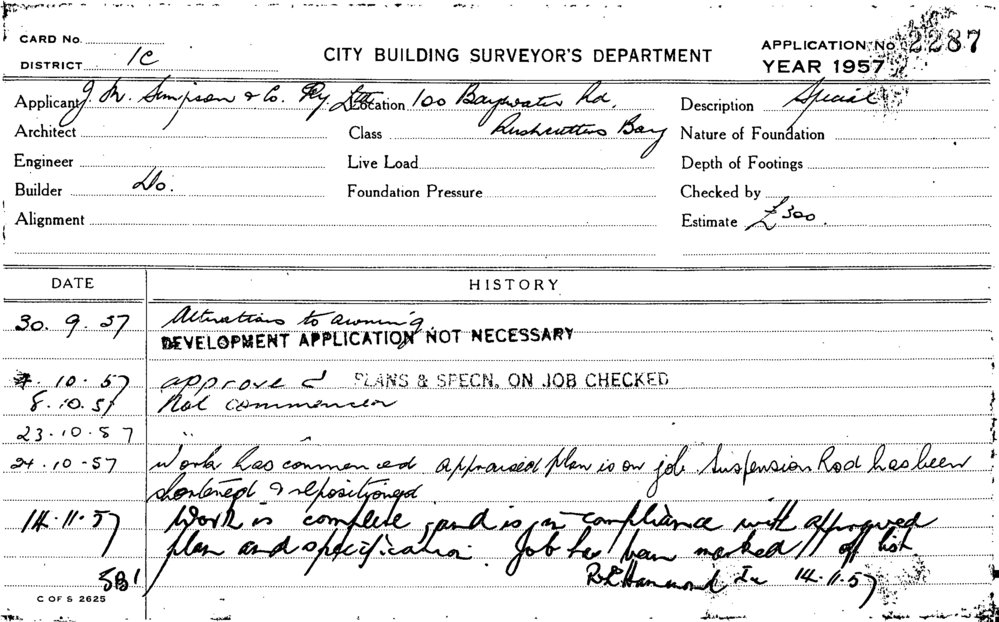 CARD No.
DISTRICT 1C
CITY BUILDING SURVEYOR'S DEPARTMENT
APPLICATION No 2287
YEAR 1957
Applicant J. M. Simpson & Co. Pty Ltd Location 100 Bayswater Rd, Description Special
Architect Class Rushcutters Bay Nature of Foundation
Engineer Live Load Depth of Footings
Builder Do. Foundation Pressure Checked by
Alignment Estimate £300.
DATE HISTORY
30. 9. 57 Alterations to awning
DEVELOPMENT APPLICATION NOT NECESSARY
4. 10. 57 approved PLANS & SPECN, ON JOB CHECKED
8. 10. 57 Not commenced
23. 10. 57 "
24. 10. 57 Work has commenced. approved plan is on job. Suspension Rod has been
shortened & repositioned
14. 11. 57 Work is complete, and is in compliance with approved
plan and specification. Job has been marked off list
Hammond 14.11.57
C OF S 2625